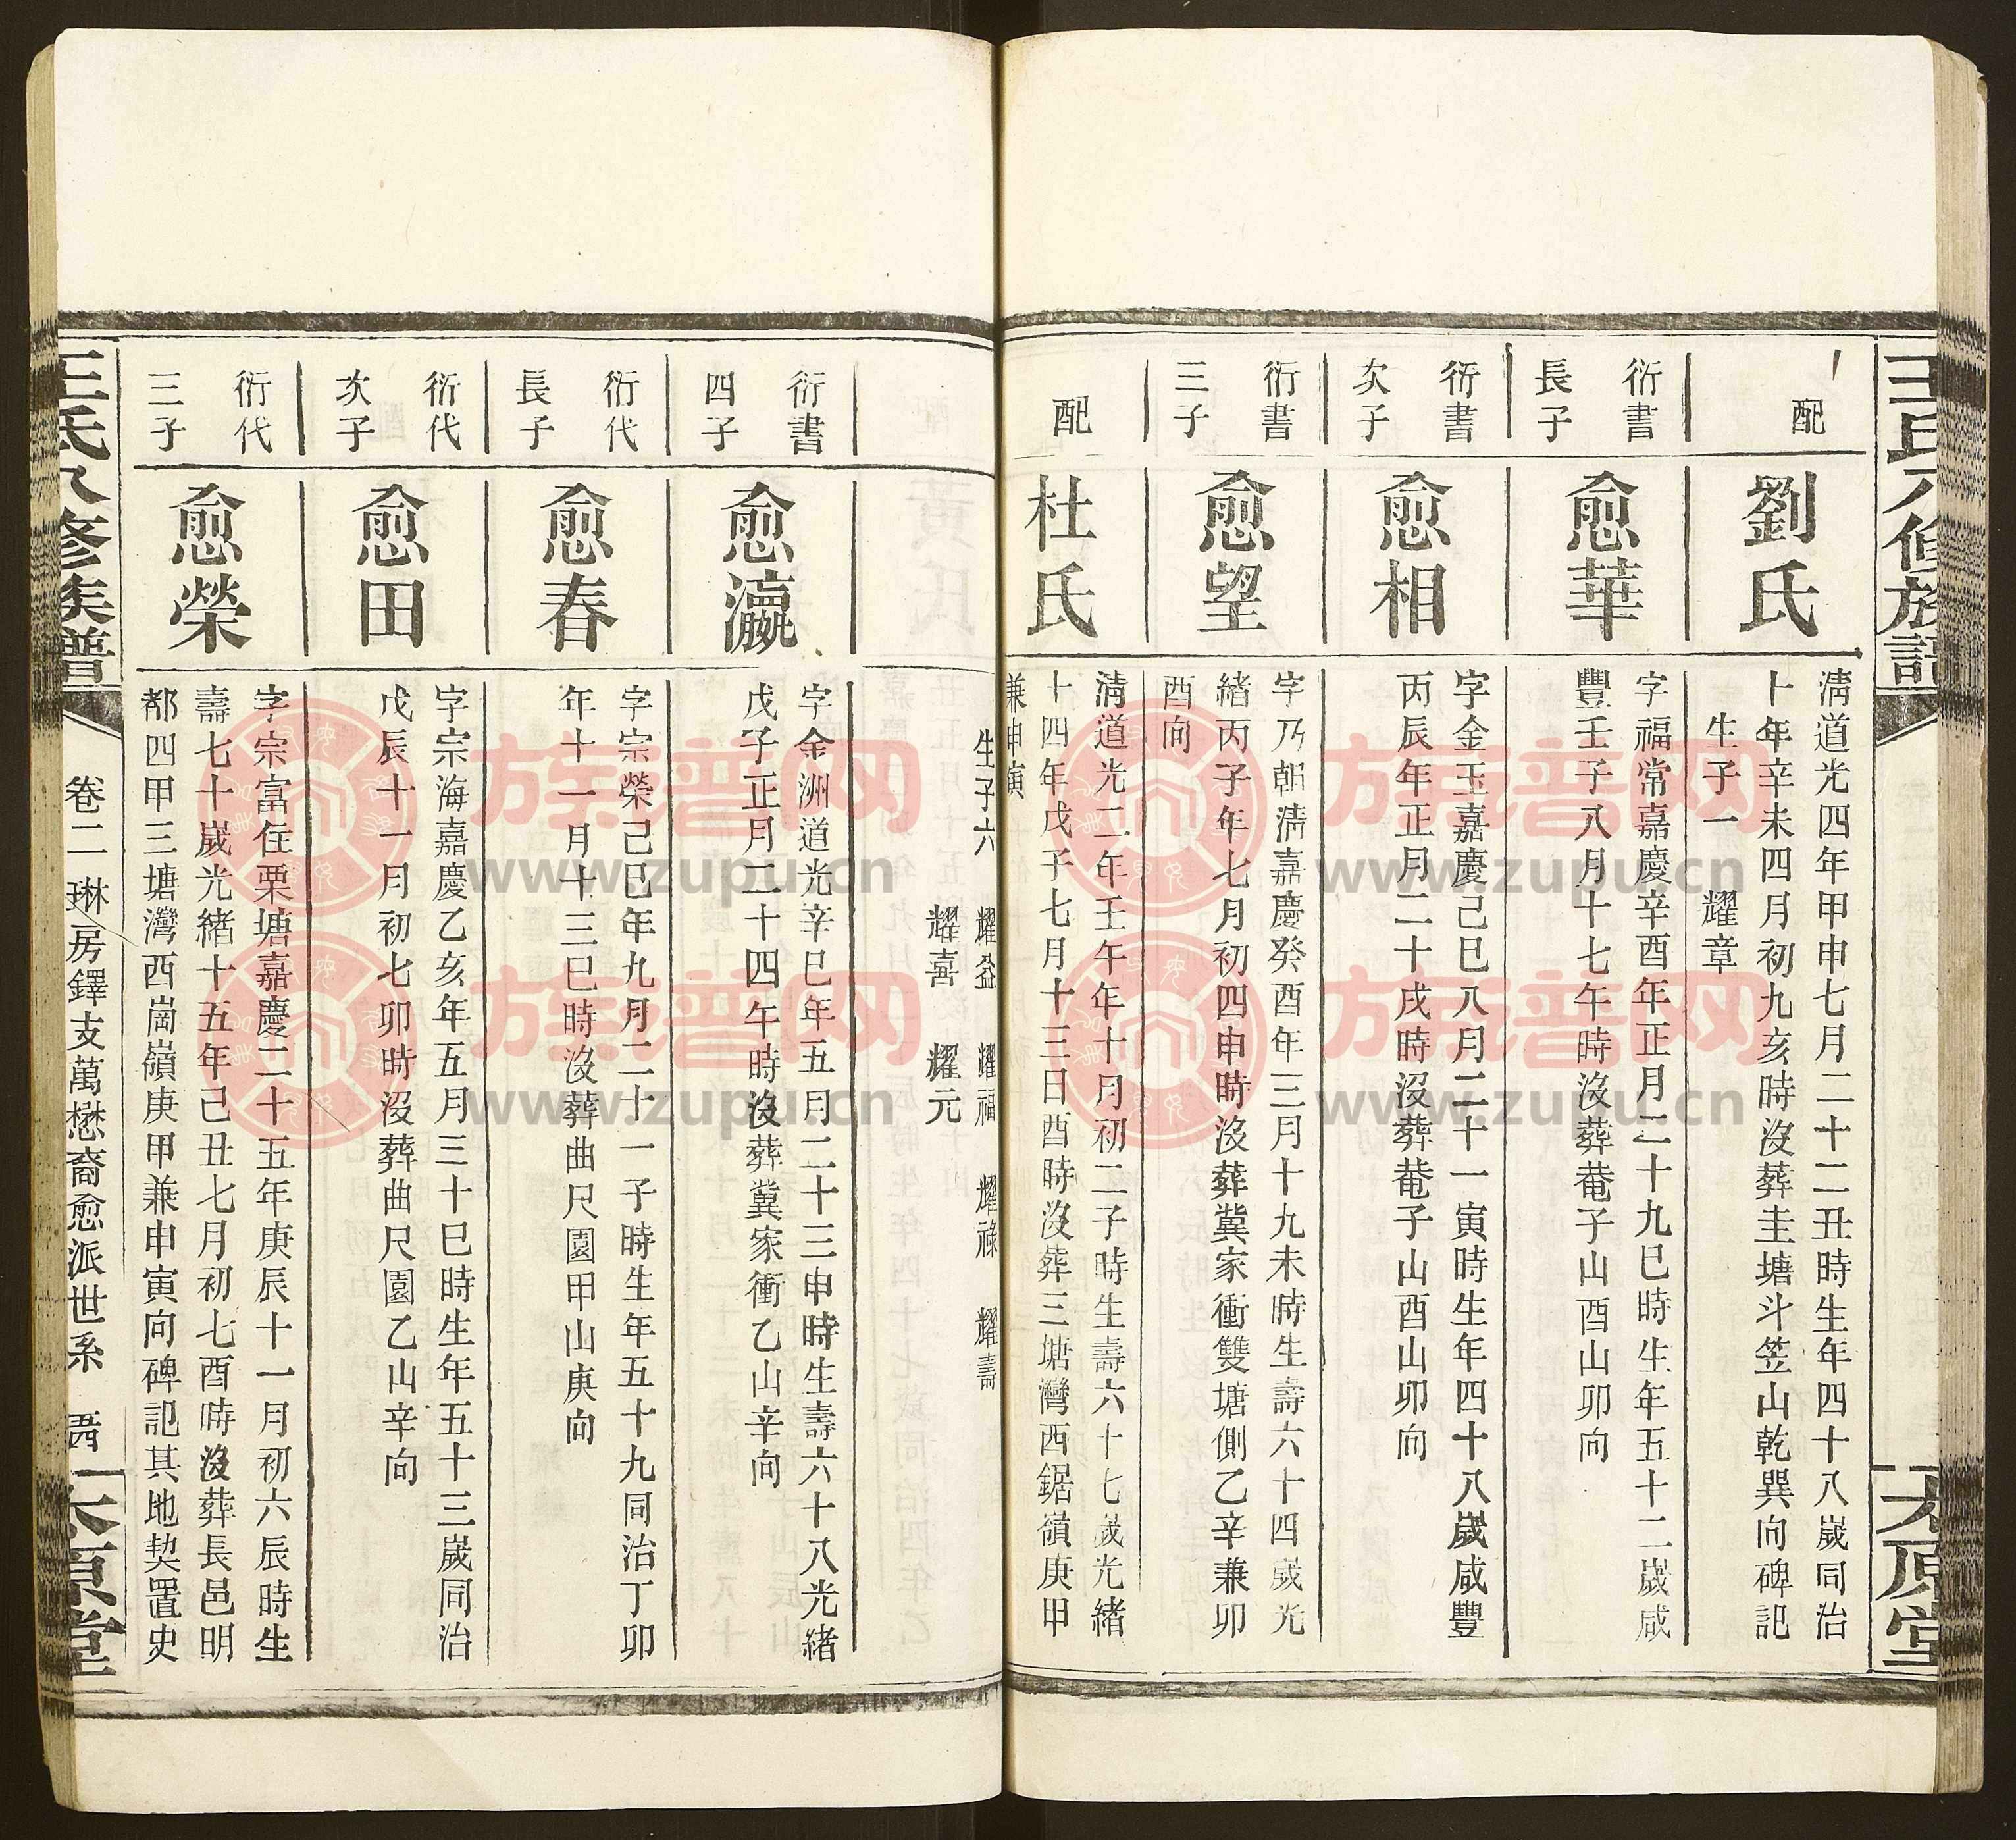 王氏八修族譜
太原堂
配
劉氏
清道光四年甲申七月二十二丑時生年四十八歲同治
十年辛未四月初九亥時沒葬圭塘斗笠山乾巽向碑記
生子一　耀章
衍書
長子
愈華
字福常嘉慶辛酉年正月二十九巳時生年五十二歲咸
豐壬子八月十七午時沒葬菴子山酉山卯向
衍書
次子
愈相
字金玉嘉慶己巳八月二十一寅時生年四十八歲咸豐
丙辰年正月二十戌時沒葬菴子山酉山卯向
衍書
三子
愈望
字乃朝清嘉慶癸酉年三月十九未時生壽六十四歲光
緒丙子年七月初四申時沒葬冀家衝雙塘側乙辛兼卯
酉向
配
杜氏
清道光二年壬午年十月初二子時生壽六十七歲光緒
十四年戊子七月十三日酉時沒葬三塘灣西鋸嶺庚甲
兼申寅
生子六　耀益　耀福　耀祿　耀壽
耀喜　耀元
衍書
四子
愈瀛
字金洲道光辛巳年五月二十三申時生壽六十八光緒
戊子正月二十四午時沒葬冀家衝乙山辛向
衍代
長子
愈春
字宗榮己巳年九月二十一子時生年五十九同治丁卯
年十一月十三巳時沒葬曲尺園甲山庚向
衍代
次子
愈田
字宗海嘉慶乙亥年五月三十巳時生年五十三歲同治
戊辰十一月初七卯時沒葬曲尺園乙山辛向
衍代
三子
愈榮
字宗富住栗塘嘉慶二十五年庚辰十一月初六辰時生
壽七十歲光緒十五年己丑七月初七酉時沒葬長邑明
都四甲三塘灣西崗嶺庚甲兼申寅向碑記其地契置史
王氏八修族譜
卷二　琳房鐸支萬懋裔愈派世系
太原堂
族谱网
www.zupu.cn
族谱网
www.zupu.cn
族谱网
www.zupu.cn
族谱网
www.zupu.cn